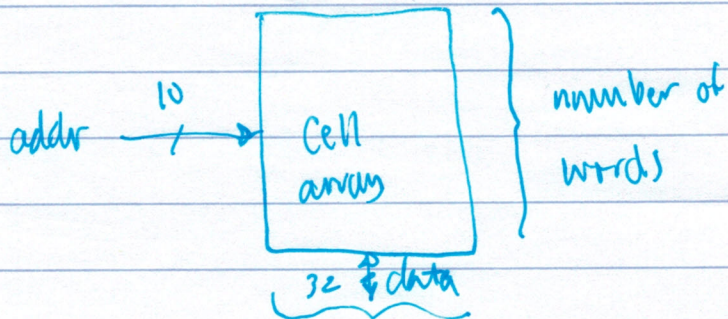 10
addr
Cell
array
number of
words
32 data